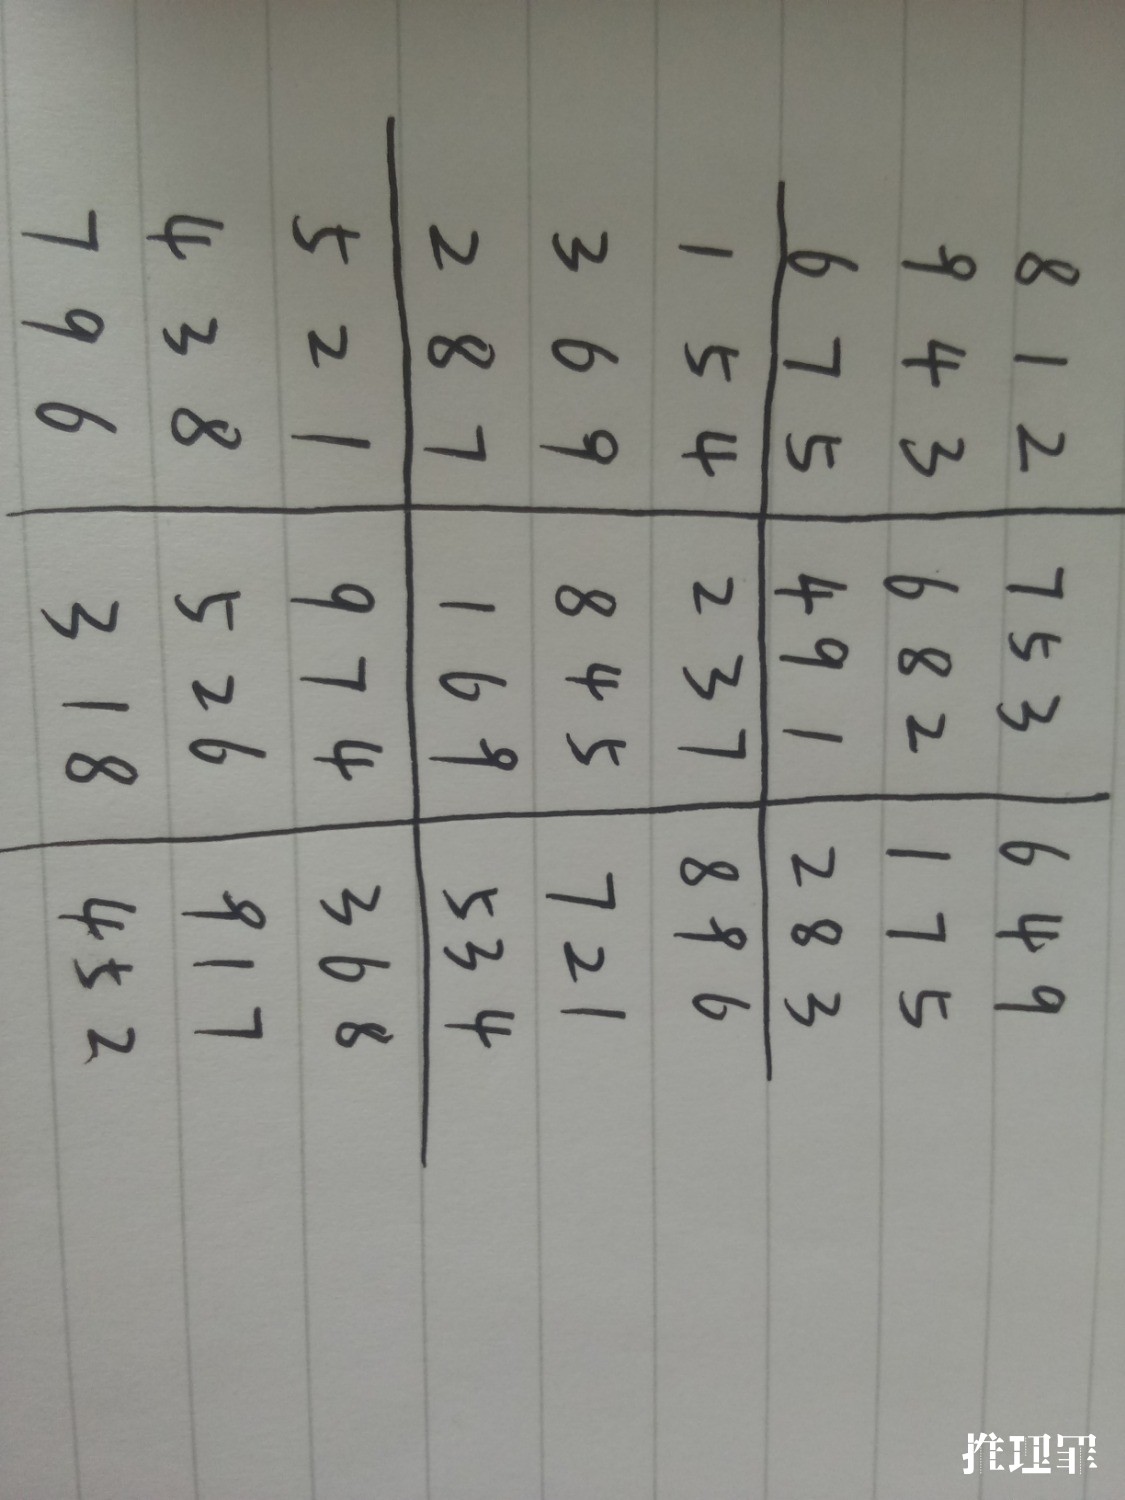 8 1 2 7 5 3 6 4 9
9 4 3 6 8 2 1 7 5
6 7 5 4 9 1 2 8 3
1 5 4 2 3 7 8 9 6
3 6 9 8 4 5 7 2 1
2 8 7 1 6 9 5 3 4
5 2 1 9 7 4 3 6 8
4 3 8 5 2 6 9 1 7
7 9 6 3 1 8 4 5 2
推理罪